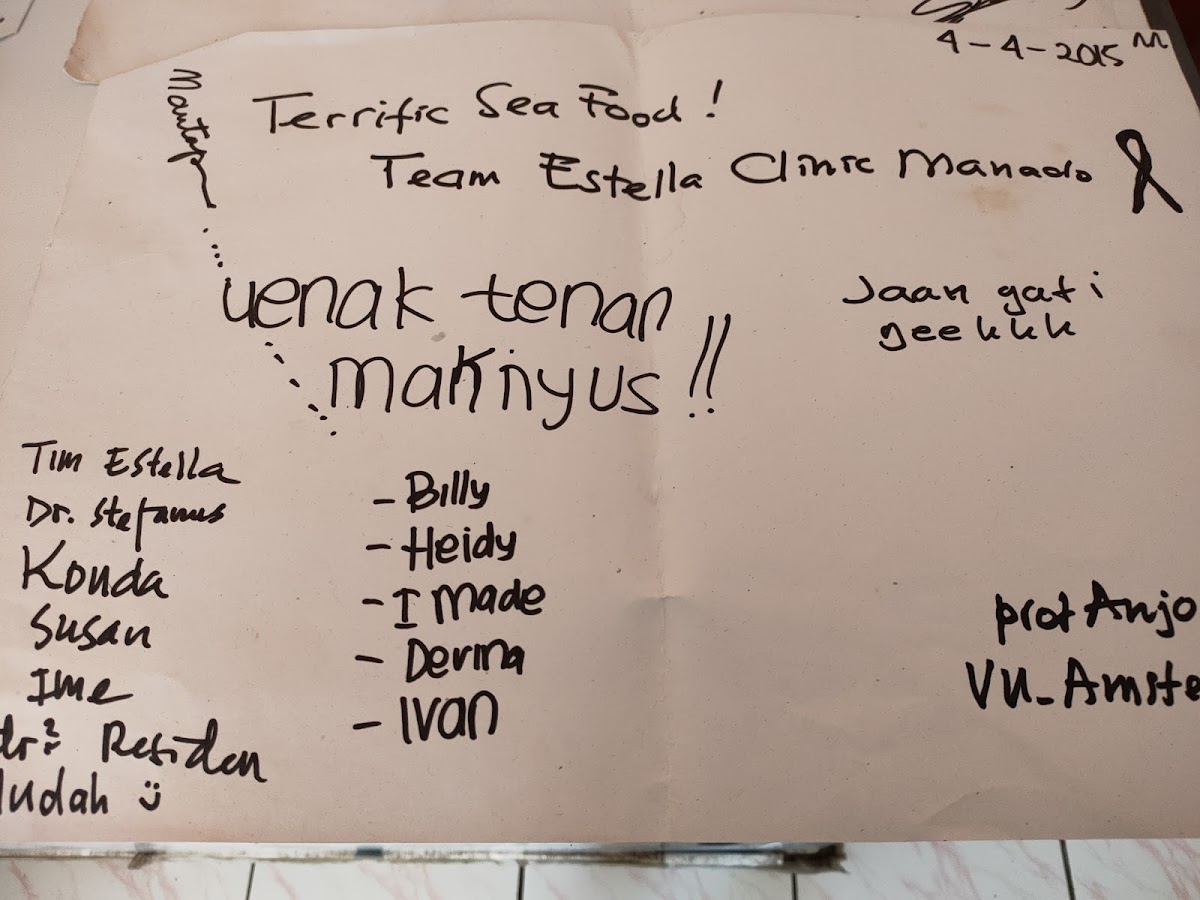 4-4-2015
Mantap
Terrific Sea Food!
Team Estella Clinic Manado
uenak tenan
maknyus!!
Jaan gati
geekkk
Tim Estella
Dr. Stefanus
Konda
Susan
Ime
dr² Residen
- Billy
- Heidy
- I Made
- Derma
- Ivan
prof Anjo
VU-Amste